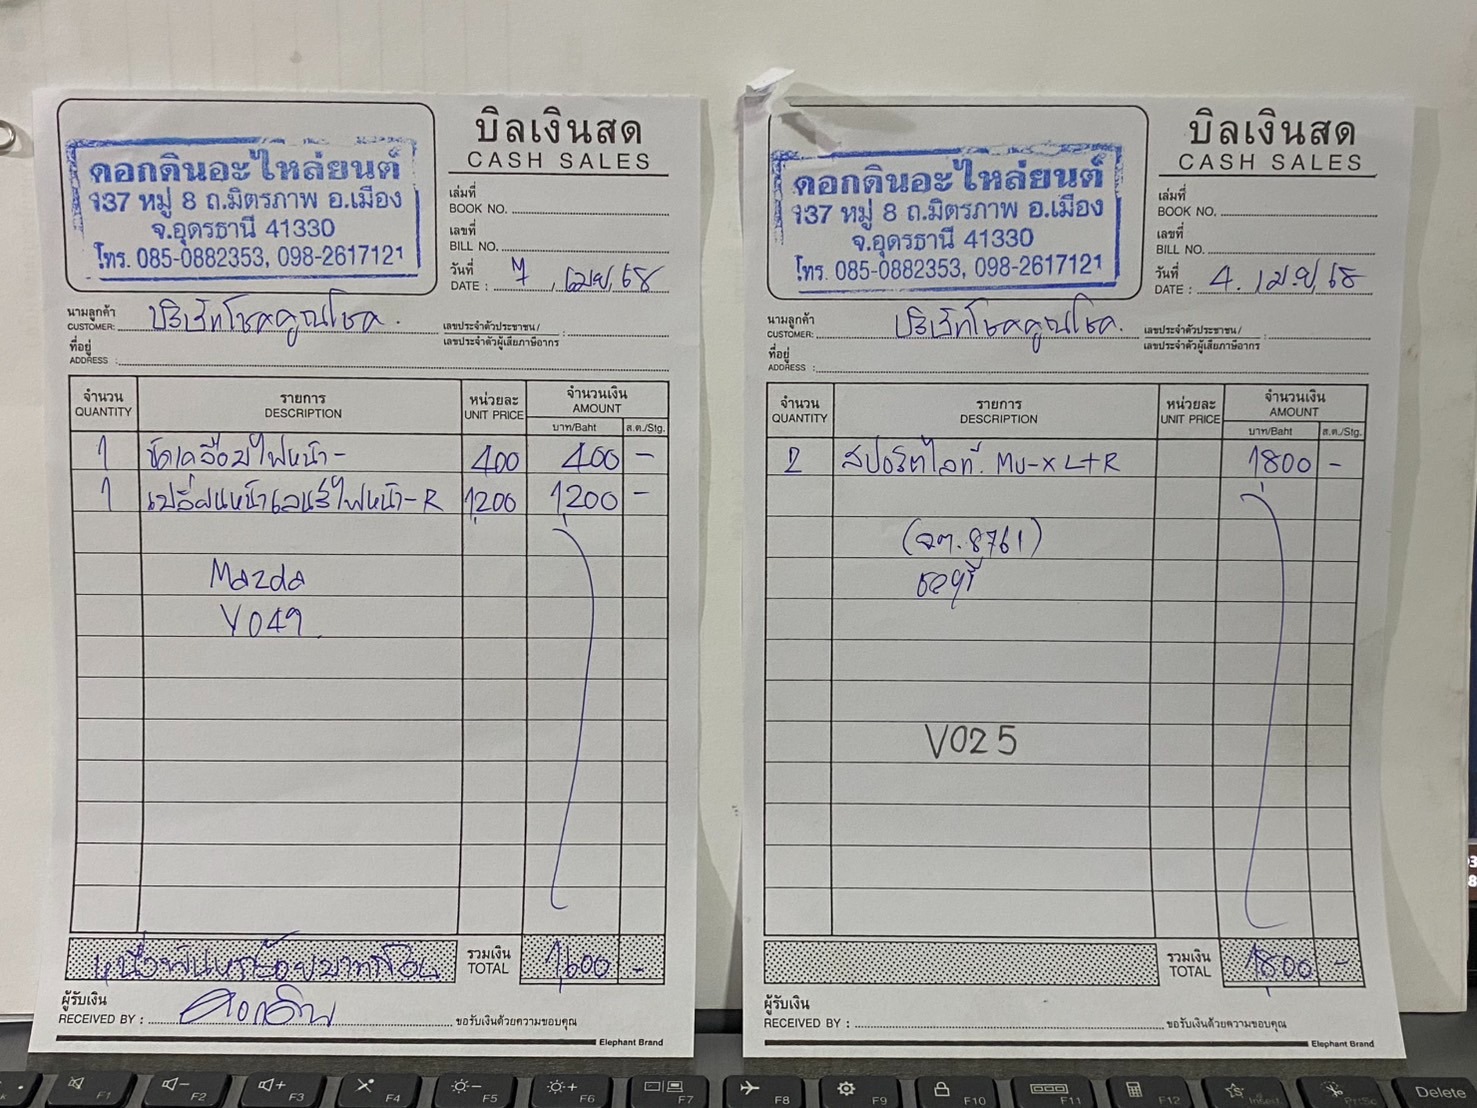 บิลเงินสด
CASH SALES
ดอกดินอะไหล่ยนต์
137 หมู่ 8 ถ.มิตรภาพ อ.เมือง
จ.อุดรธานี 41330
โทร. 085-0882353, 098-2617121
เล่มที่
BOOK NO.
เลขที่
BILL NO.
วันที่
DATE : 7 เมย, 68
นามลูกค้า
CUSTOMER: บริษัทโชคคูณโชค.
เลขประจำตัวประชาชน/ :
เลขประจำตัวผู้เสียภาษีอากร
ที่อยู่
ADDRESS :
จำนวน รายการ หน่วยละ จำนวนเงิน
QUANTITY DESCRIPTION UNIT PRICE AMOUNT
บาท/Baht ส.ต./Stg.
1 ขัดเคลือบไฟหน้า- 400 400 -
1 เปลี่ยนหน้าเลนส์ไฟหน้า-R 1200 1200 -
Mazda
V049
หนึ่งพันหกร้อยบาทถ้วน รวมเงิน 1600 -
TOTAL
ผู้รับเงิน
RECEIVED BY : ดอกดิน ขอรับเงินด้วยความขอบคุณ
Elephant Brand
บิลเงินสด
CASH SALES
ดอกดินอะไหล่ยนต์
137 หมู่ 8 ถ.มิตรภาพ อ.เมือง
จ.อุดรธานี 41330
โทร. 085-0882353, 098-2617121
เล่มที่
BOOK NO.
เลขที่
BILL NO.
วันที่
DATE : 4. เม.ย, 68
นามลูกค้า
CUSTOMER: บริษัทโชคคูณโชค.
เลขประจำตัวประชาชน/ :
เลขประจำตัวผู้เสียภาษีอากร
ที่อยู่
ADDRESS :
จำนวน รายการ หน่วยละ จำนวนเงิน
QUANTITY DESCRIPTION UNIT PRICE AMOUNT
บาท/Baht ส.ต./Stg.
2 สปอร์ตไลท์. MU-X L+R 1800 -
8761)
V025
รวมเงิน 1800 -
TOTAL
ผู้รับเงิน
RECEIVED BY : ขอรับเงินด้วยความขอบคุณ
Elephant Brand
F1 F2 F3 F4 F5 F6 F7 F8 F9 F10 F11 F12 Insert PrtSc Delete